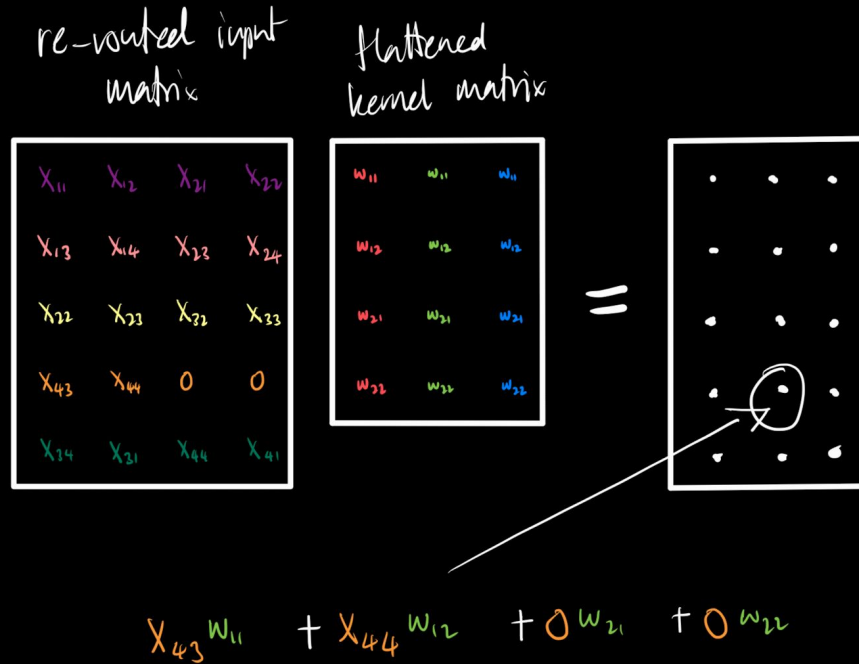 re-routed input
matrix
flattened
kernel matrix
X₁₁ X₁₂ X₂₁ X₂₂
X₁₃ X₁₄ X₂₃ X₂₄
X₂₂ X₂₃ X₃₂ X₃₃
X₄₃ X₄₄ 0 0
X₃₄ X₃₁ X₄₄ X₄₁
w₁₁ w₁₁ w₁₁
w₁₂ w₁₂ w₁₂
w₂₁ w₂₁ w₂₁
w₂₂ w₂₂ w₂₂
=
X₄₃ w₁₁ + X₄₄ w₁₂ + 0 w₂₁ + 0 w₂₂